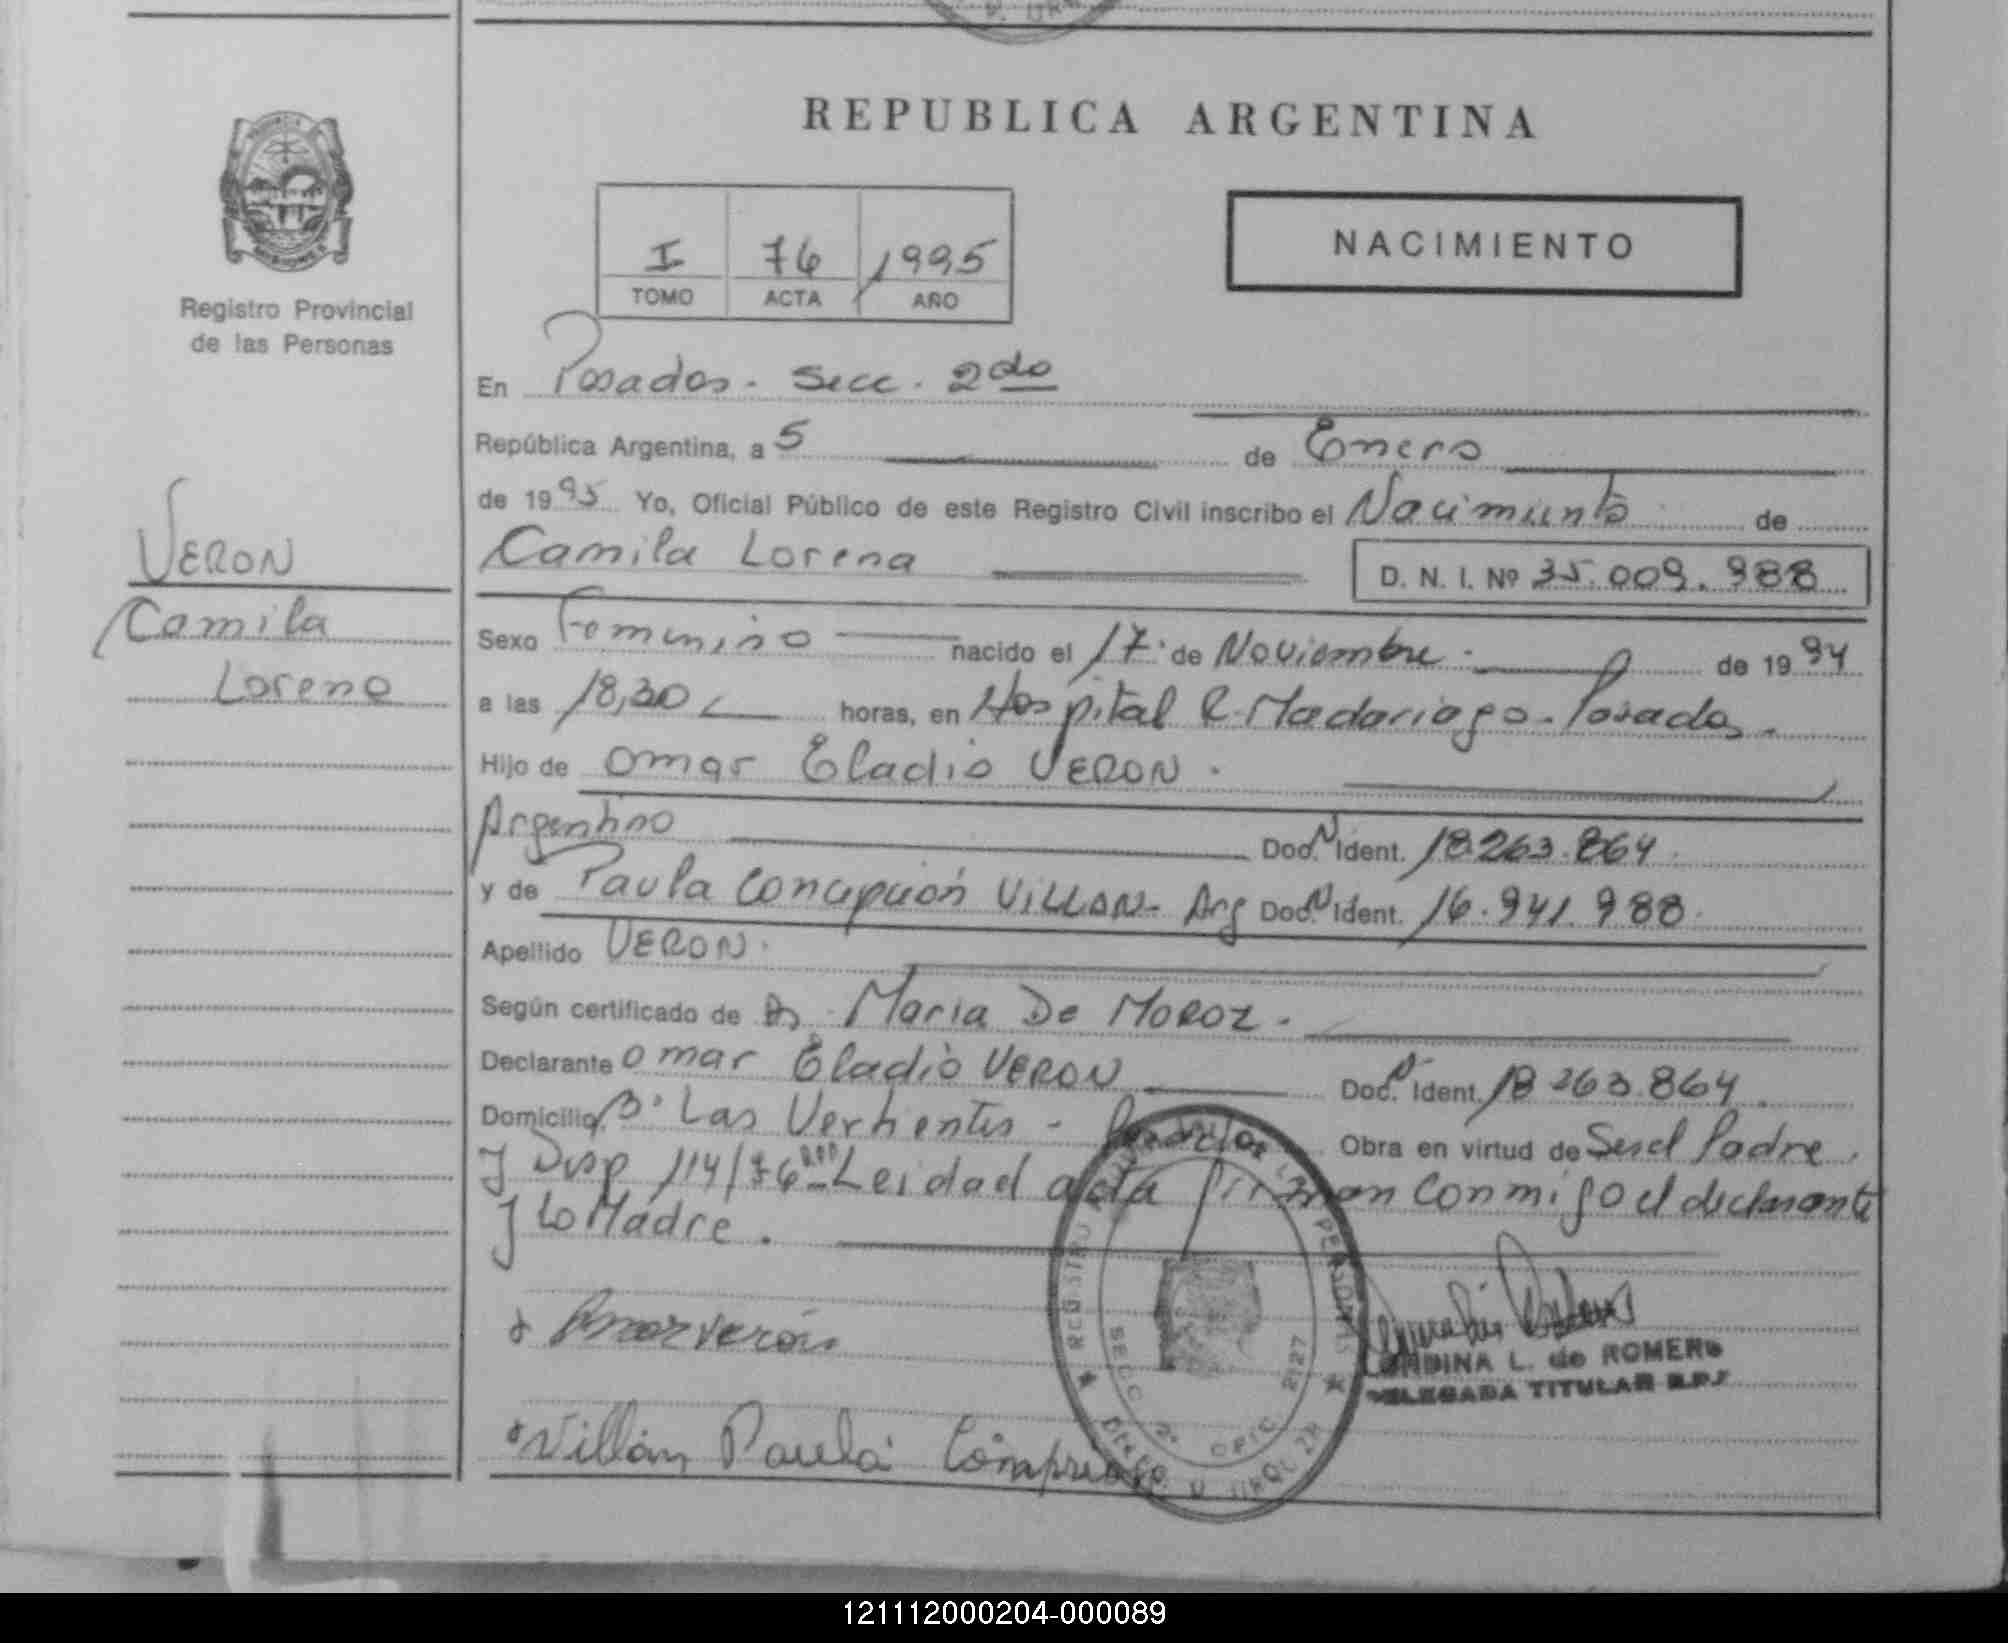 REPUBLICA ARGENTINA
NACIMIENTO
I 76 1995
TOMO ACTA AÑO
Registro Provincial
de las Personas
En Posadas - Secc. 2do
República Argentina, a 5 de Enero
de 1995 Yo, Oficial Público de este Registro Civil inscribo el Nacimiento de
Camila Lorena D. N. I. Nº 35.009.988
VERON
Camila
Lorena
Sexo Femenino nacido el 17 de Noviembre de 1994
a las 18,30 horas, en Hospital R. Madariaga - Posadas.
Hijo de Omar Eladio VERON.
Argentino Doc. N Ident. 18.263.864
y de Paula Concepción VILLAN - Arg Doc. N Ident. 16.941.988
Apellido VERON.
Según certificado de Maria De MOROZ.
Declarante Omar Eladio VERON Doc. N Ident. 18.263.864
Domicilio Bº Las Vertientes - Posadas Obra en virtud de Ser el Padre
y Disp 114/86 Leida el acta firman conmigo el declarante
y La Madre.
Omar verón
Villán Paula
REGISTRO PERSONAS
SECC 2ª OFIC 2127
L. de ROMERO
DELEGADA TITULAR R.P.P
121112000204-000089